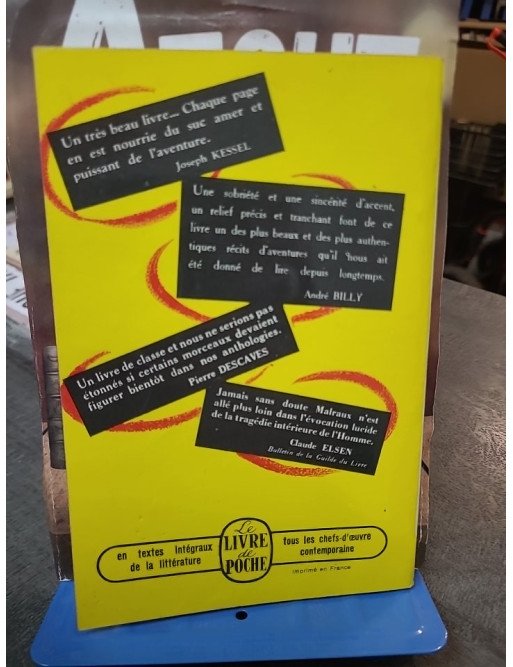 Un très beau livre... Chaque page
en est nourrie du suc amer et
puissant de l'aventure.
Joseph KESSEL
Une sobriété et une sincérité d'accent,
un relief précis et tranchant font de ce
livre un des plus beaux et des plus authen-
tiques récits d'aventures qu'il nous ait
été donné de lire depuis longtemps.
André BILLY
Un livre de classe et nous ne serions pas
étonnés si certains morceaux devaient
figurer bientôt dans nos anthologies.
Pierre DESCAVES
Jamais sans doute Malraux n'est
allé plus loin dans l'évocation lucide
de la tragédie intérieure de l'Homme.
Claude ELSEN
Bulletin de la Guilde du Livre
en textes intégraux
de la littérature
Le
LIVRE
de
POCHE
tous les chefs-d'œuvre
contemporaine
Imprimé en France